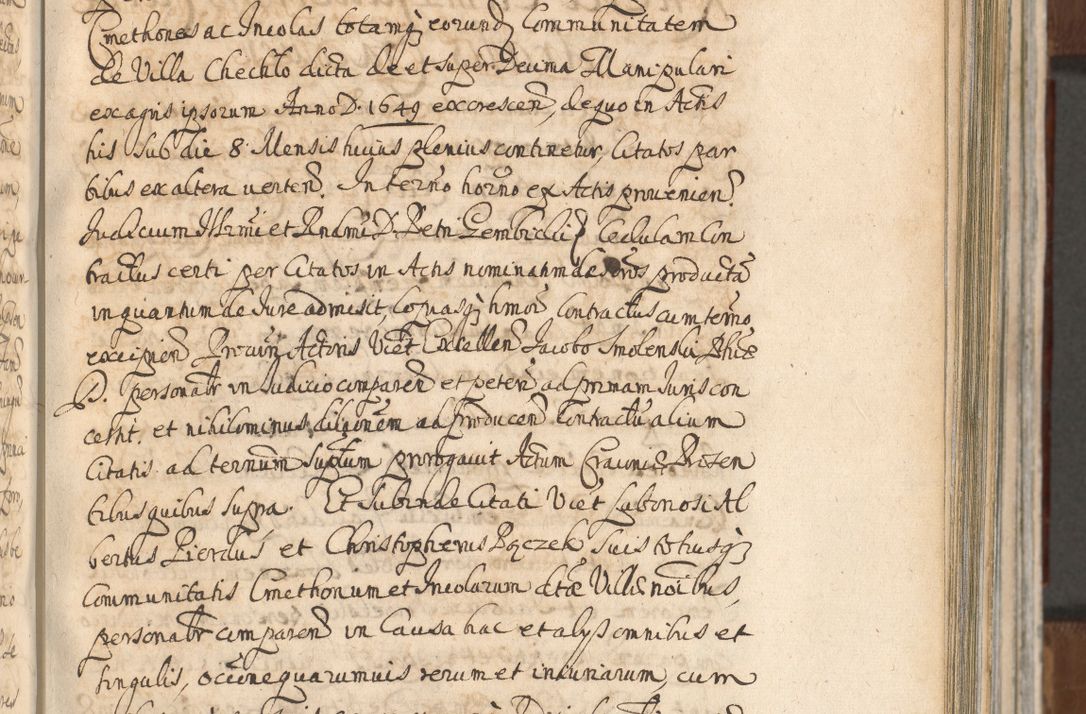 Cmethones ac Incolas totamq; eorund; Communitatem
de Villa Chechło dicta de et super Decima Manipulari
ex agris ipsorum Anno D. 1649 excrescen, de quo in Actis
his sub die 8 Mensis huius plenius continetur, Citatos par
tibus ex altera uerten. In termo horno ex Actis prouenien.
Judicium Illrmi et Rndmi D. Petri Gembicki Cedulam Con
tractus certi per Citatos in Actis nominatim producta
in quantum de Jure admisit, Copiasq; hmoi Contractus cum termo
excipien Procuri Actoris Vicet Excellen Jacobo Smolenski Phiae
D. personalr in Judicio comparen et peten ad primam Juris con
cessit. et nihilominus dilaonem ad producen Contractu alium
Citatis ad ternum suptum prorogauit Actum Cracouiae Presen
tibus quibus supra. Et subinde Citati Vicet Laboriosi Al
bertus Pierdus et Christopherus Pączek suis totiusq;
Communitatis Cmethonum et Incolarum dctae Villae noibus,
personalr comparen in Causa hac et alys omnibus et
singulis, occone quarumuis rerum et iniuriarum, cum